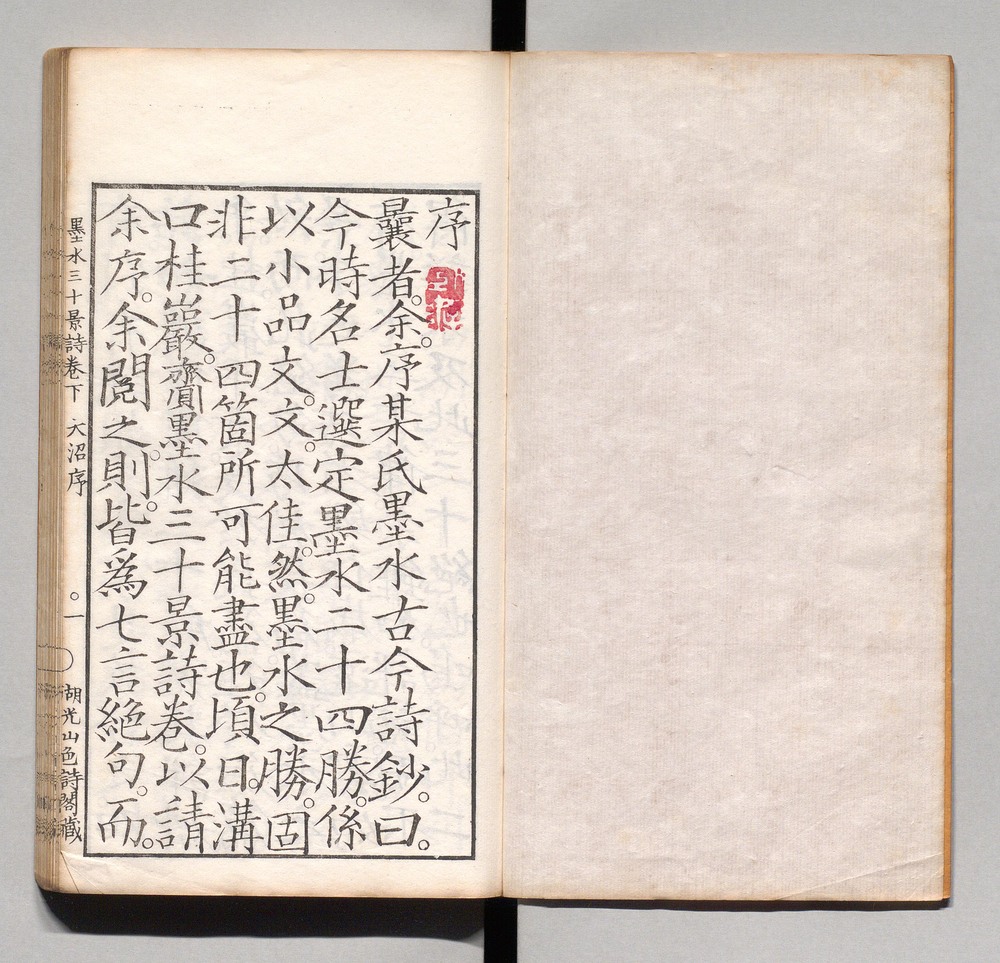 序
曩者。余。序某氏墨水古今詩鈔。曰。
今時名士選定墨水二十四勝。係
以小品文。文太佳。然。墨水之勝。固
非二十四箇所可能盡也。頃日。溝
口桂巖。齎墨水三十景詩卷。以請
余序。余閲之。則。皆爲七言絶句。而。
墨水三十景詩卷下 大沼序 一 胡光山色詩閣藏